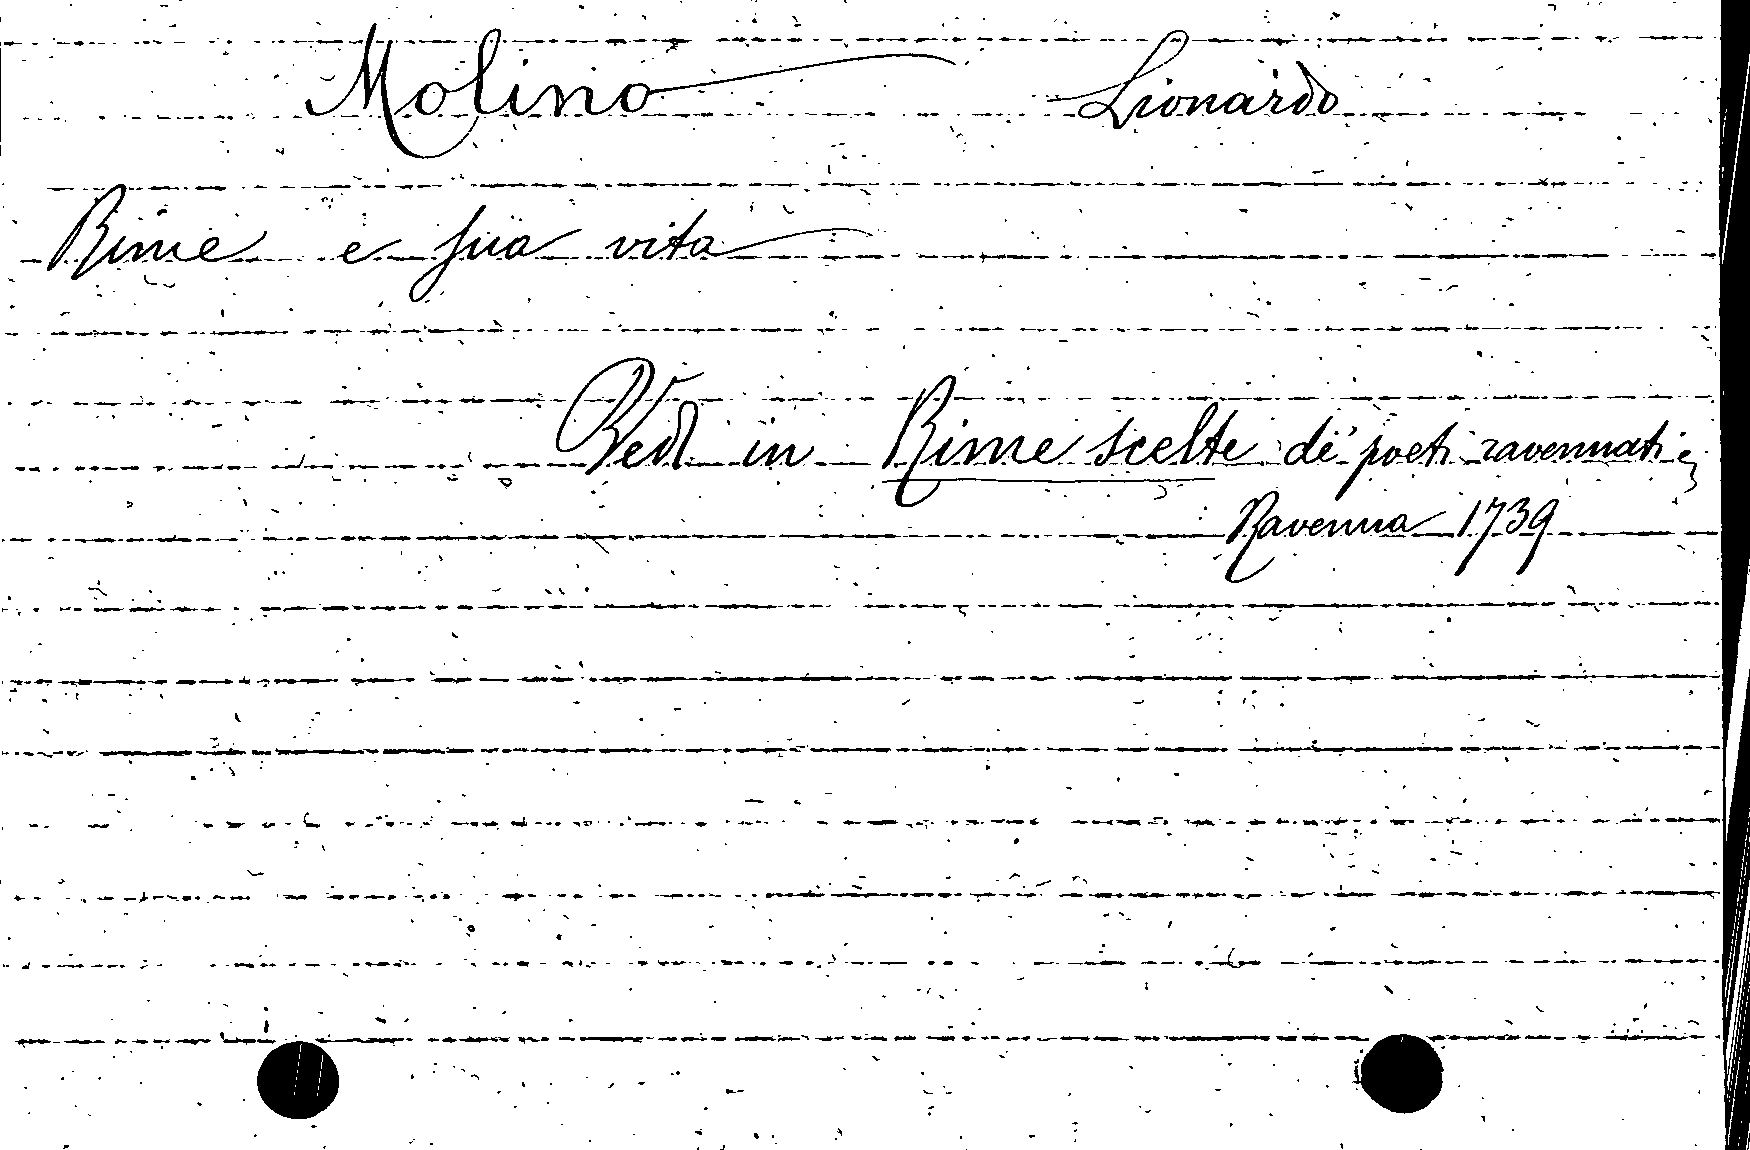 Molino Lionardo
Rime e sua vita
Vedi in Rime scelte de' poeti ravennati
Ravenna 1739